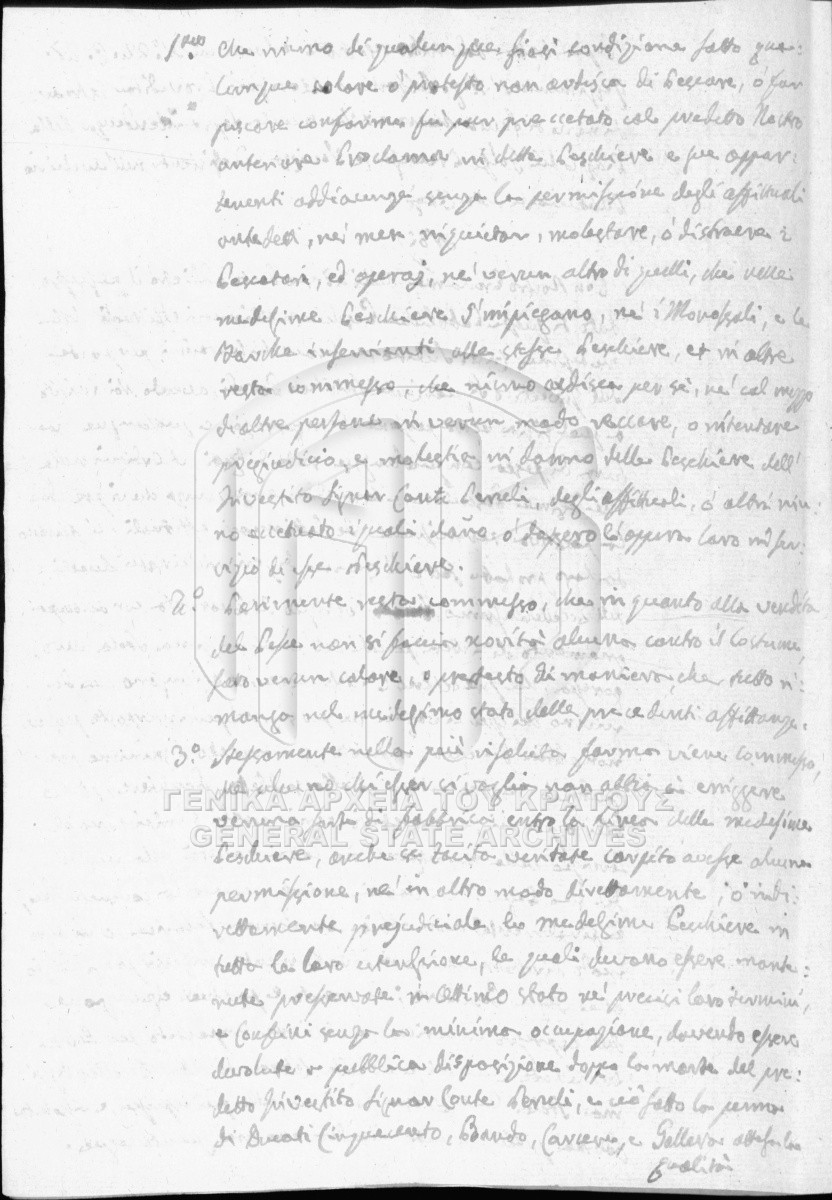 1.mo Che niuno di qualunque siasi condizione sotto qua:
lunque colore o' pretesto non ardisca di Pescare, o' far
pescare conforme fù per precettato col predetto Nostro
anteriore Proclama in dette Peschiere e sue appar:
tenenti addiacenze senza la permissione degli affittuali
antedetti, ne' men inquietar, molestare, o' distraere i
Pescatori, ed operaj, ne' verun altro di quelli, che nelle
medesime Peschiere s'impiegano, ne' i Monossili, e le
Barche inservienti alle stesse Peschiere, et in oltre
resta commesso, che niuno ardisca per se, ne' col mezzo
di altre persone in verun modo reccare, o intentare
pregiudicio, e molestia in danno delle Peschiere dell'
Investito Signor Conte degli affittuali, o' altri niu:
no eccetuato i quali o' loro in ser:
vizio di esse Peschiere.
2.o Parimente resta commesso, che in quanto alla vendita
del Pesce non si faccia novità alcuna contro il costume,
sotto verun colore, o pretesto di maniera, che tutto ri:
manga nel medesimo stato delle precedenti affittanze.
3.o Stessamente nella più risoluta forma viene commesso,
che alcuno chi esser si voglia non abbia à erriggere
veruna sorte di fabbrica entro la linea delle medesime
Peschiere, anche se tacita veritate carpito avesse alcuna
permissione, ne' in altro modo direttamente, o' indi:
rettamente pregiudiciale le medesime Peschiere in
tutta la loro estensione, le quali devono essere mante:
nute preservate in ottimo stato ne' precisi loro termini,
e confini senza la minima occupazione, dovendo essere
devolute a pubblica disposizione doppo la morte del pre:
detto Investito Signor Conte e ciò sotto la pena
di Ducati Cinquecento, Bando, Carcere, e Gallera attesa la
qualità
ΓΕΝΙΚΑ ΑΡΧΕΙΑ ΤΟΥ ΚΡΑΤΟΥΣ
GENERAL STATE ARCHIVES